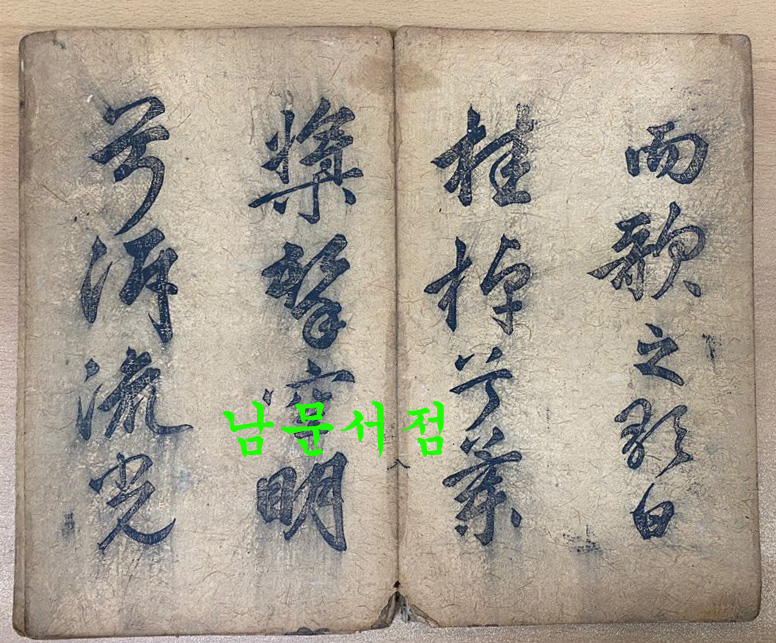 而歌之歌曰
桂棹兮蘭
槳擊空明
兮泝流光
남문서점